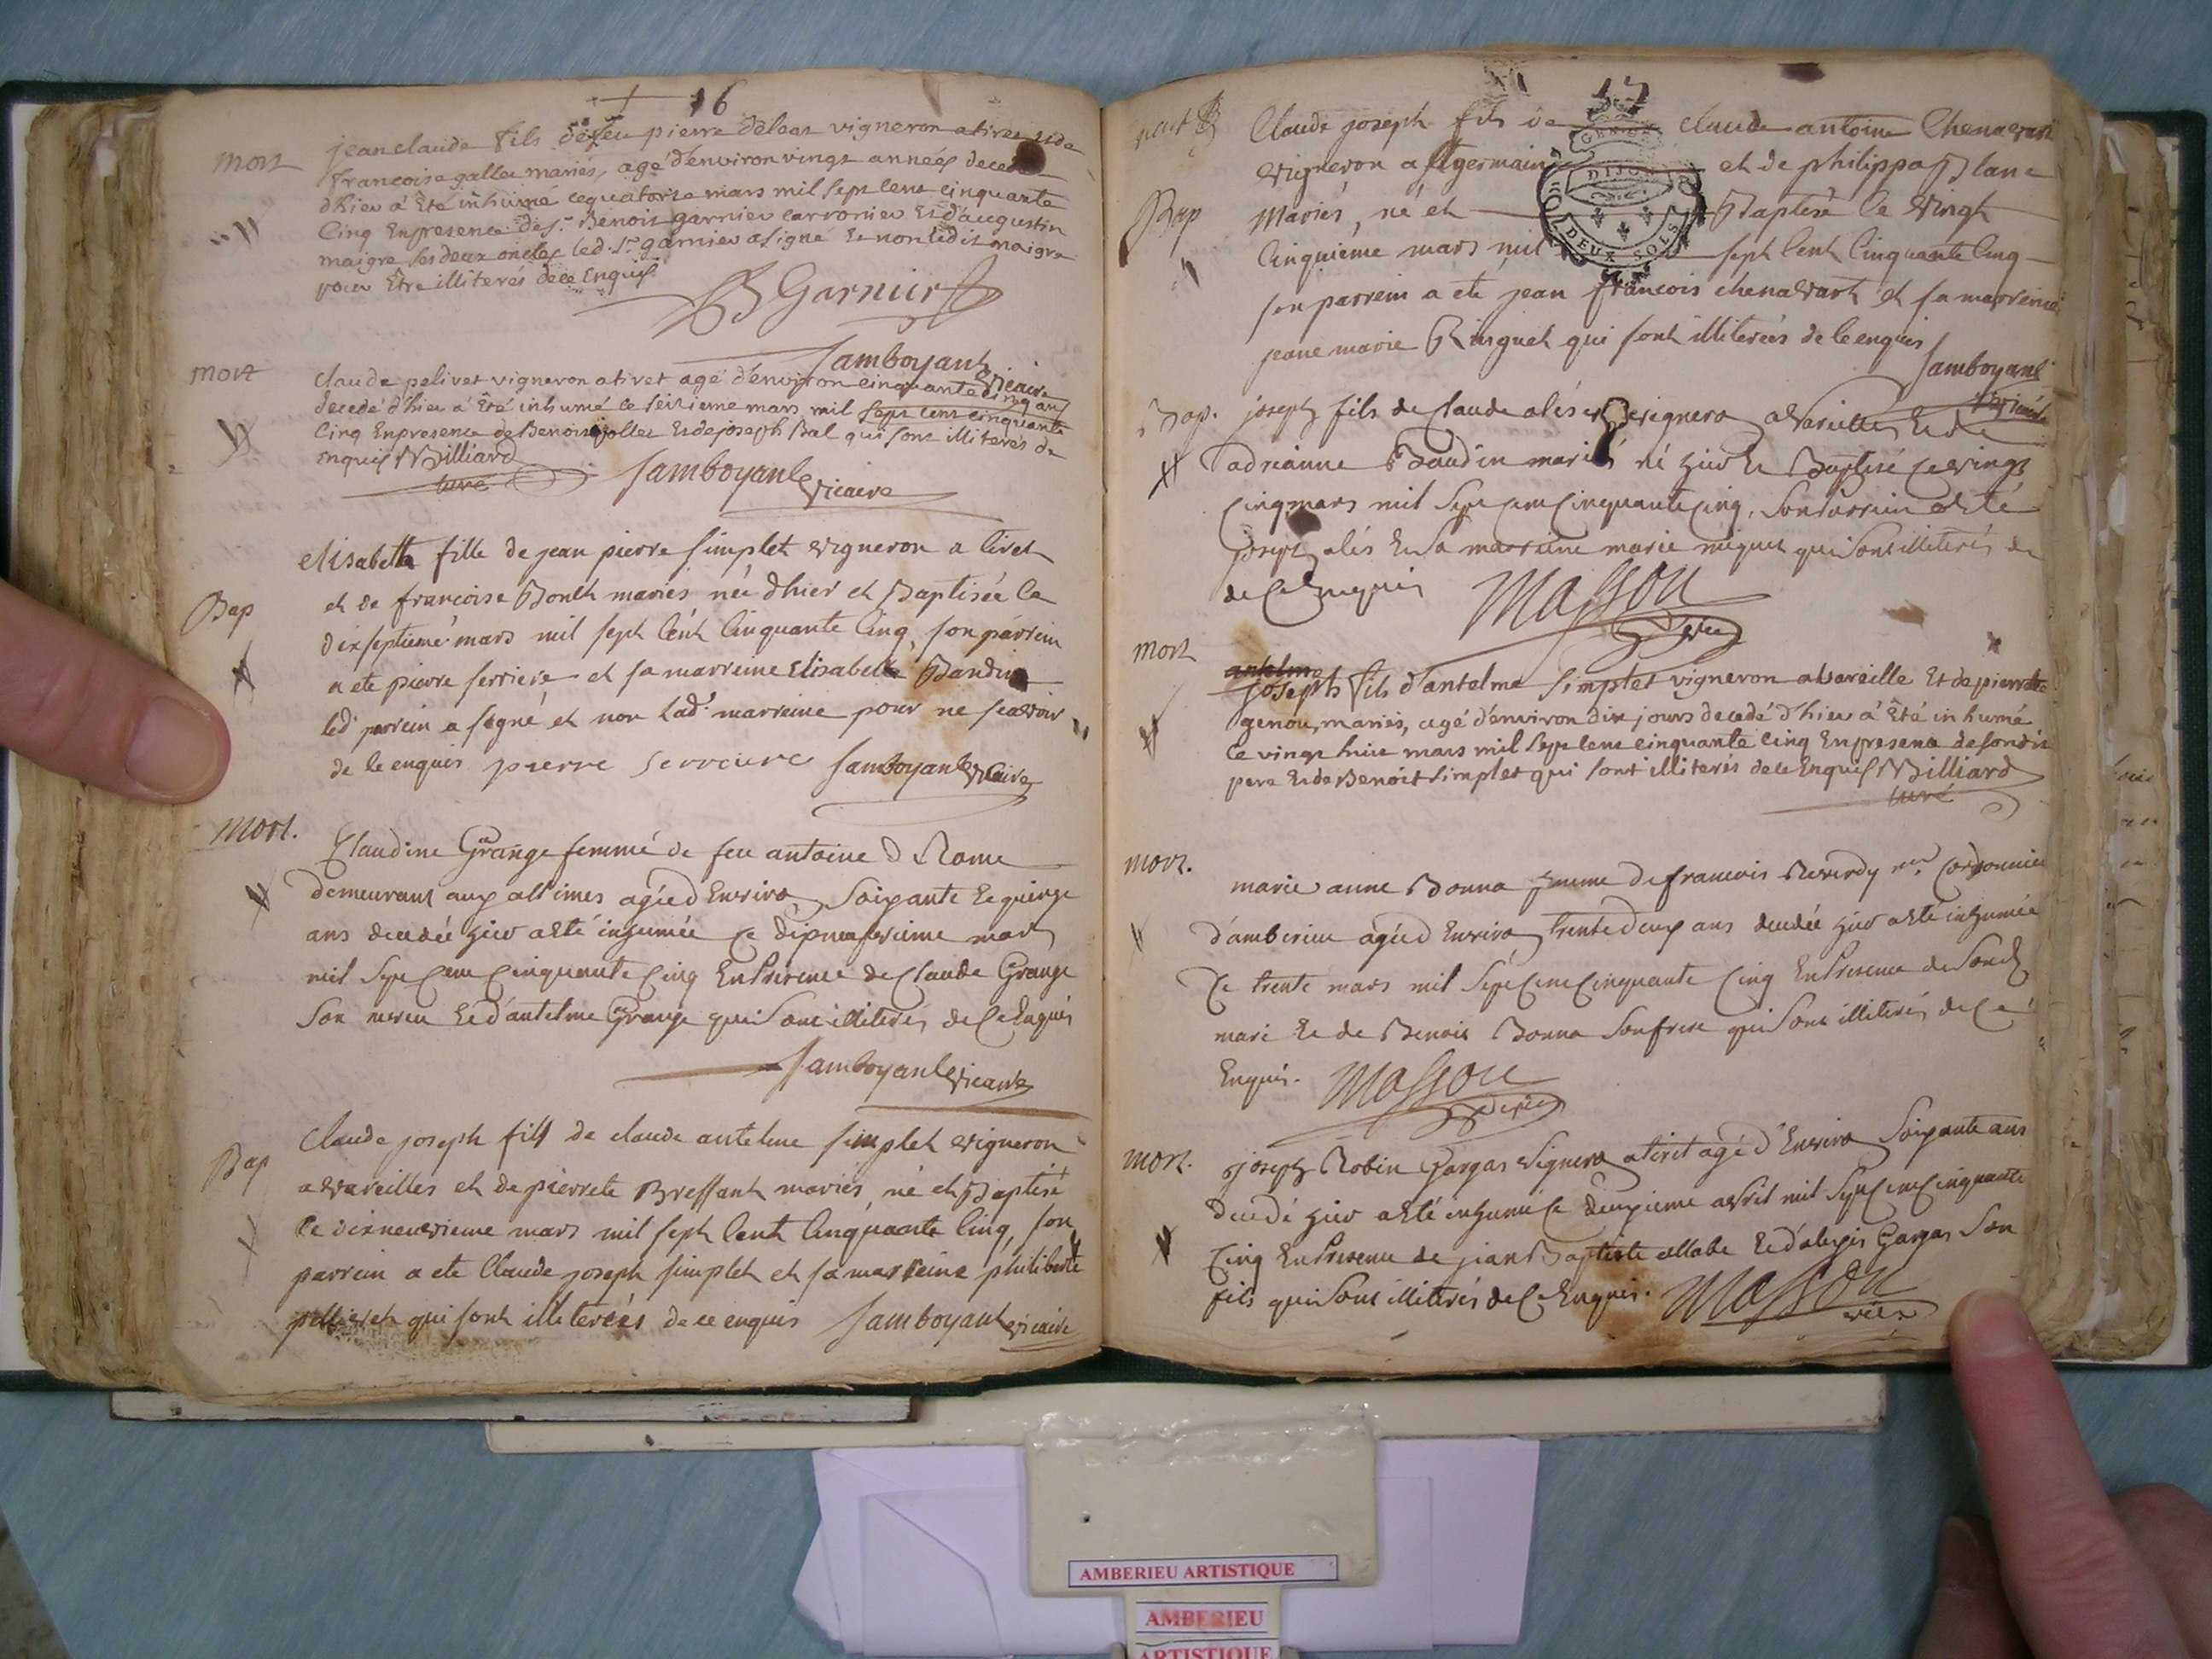 16
mort
jean claude fils de feu pierre deleas vigneron a tiret et de
francoise gallet mariés, agé d'environ vingt années decedé
d'hier a Eté inhumé ce quatorze mars mil sept cent cinquante
cinq En presence de sr. Benoit garnier cartonier Et d'augustin
maigre ses deux oncles led. sr garnier a signé Et non ledit maigre
pour Etre illiterés de ce Enquis
B Garnier
Jamboyant vicaire
mort
Claude pelivet vigneron a tiret agé d'environ cinquante cinq ans
decedé d'hier a Eté inhumé ce seizieme mars mil sept cent cinquante
Cinq En presence de Benoit jollet Et de joseph Bal qui sont illiterés de
Enquis Billiard
curé
Jamboyant vicaire
Bap
elisabeth fille de jean pierre simplet vigneron a tiret
et de francoise Bonet mariés née d'hier et Baptisée le
dix septieme mars mil sept cent cinquante cinq, son parrein
a ete pierre serriere et sa marreine Elisabeth Baudin
led. parrein a signé et non lad. marreine pour ne scavoir
de ce enquis pierre serriere Jamboyant vicaire
mort.
Claudine Grange femme de feu antoine D Rome
demeurant aux allimes agée d'Enviro soixante Et quinze
ans decedée hier a Eté inhumée ce dix neufvieme mars
mil sept Cent Cinquante Cinq En Presence de Claude Grange
son neveu Et d'antelme Grange qui sont illiterés de Ce Enquis
Jamboyant vicaire
Bap
Claude joseph fils de claude antelme simplet vigneron
a vareilles et de pierrete Bressant mariés, né et Baptisé
le dixneuvieme mars mil sept cent cinquante cinq, son
parrein a ete Claude joseph simplet et sa marreine philiberte
pellivet qui sont illiterés de ce enquis Jamboyant vicaire
17
Bap
Claude joseph fils de claude antoine Chenavart
vigneron a st germain et de philippa Blanc
Mariés, né et Baptisé le vingt
cinquieme mars mil sept cent cinquante cinq
son parrein a eté jean francois chenavart et sa marreine
jeane marie Ringuet qui sont illiterés de ce enquis
Jamboyant
vicaire
DIJON
DEUX SOLS
Bap.
joseph fils de Claude alés vignero a Vareilles Et de
adrianne Baudin mariés né hier Et Baptisé ce vingt
Cinq mars mil sept Cent Cinquante Cinq, son Parrein a Eté
joseph alés Et sa marreine marie miguet qui sont illiterés de
de Ce Enquis
Masson
vic
mort
antelme
joseph fils d'antelme simplet vigneron a vareille Et de pierrette
genou, mariés, agé d'environ dix jours decedé d'hier a Eté inhumé
Ce vingt huit mars mil sept cent cinquante cinq En presence de son dit
pere Et de Benoit simplet qui sont illiterés de ce Enquis Billiard
curé
mort.
marie anne Bonna femme de francois Reverdy Me. Cordonnier
d'amberieu agée d'Enviro trente deux ans decedée hier a Eté inhumée
Ce trente mars mil sept Cent Cinquante Cinq En Presence de Sond.
mari Et de Benoit Bonna son frere qui sont illiterés de Ce
Enquis.
Masson
vic
mort.
joseph Robin Gargas vignero a tiret agé d'Enviro soixante ans
decedé hier a Eté inhumé Ce deuxieme avril mil sept Cent Cinquante
Cinq En Presence de jean Baptiste allabe Et d'alexis Gargas son
fils qui sont illiterés de Ce Enquis.
Masson
vic
AMBERIEU ARTISTIQUE
AMBERIEU
ARTISTIQUE